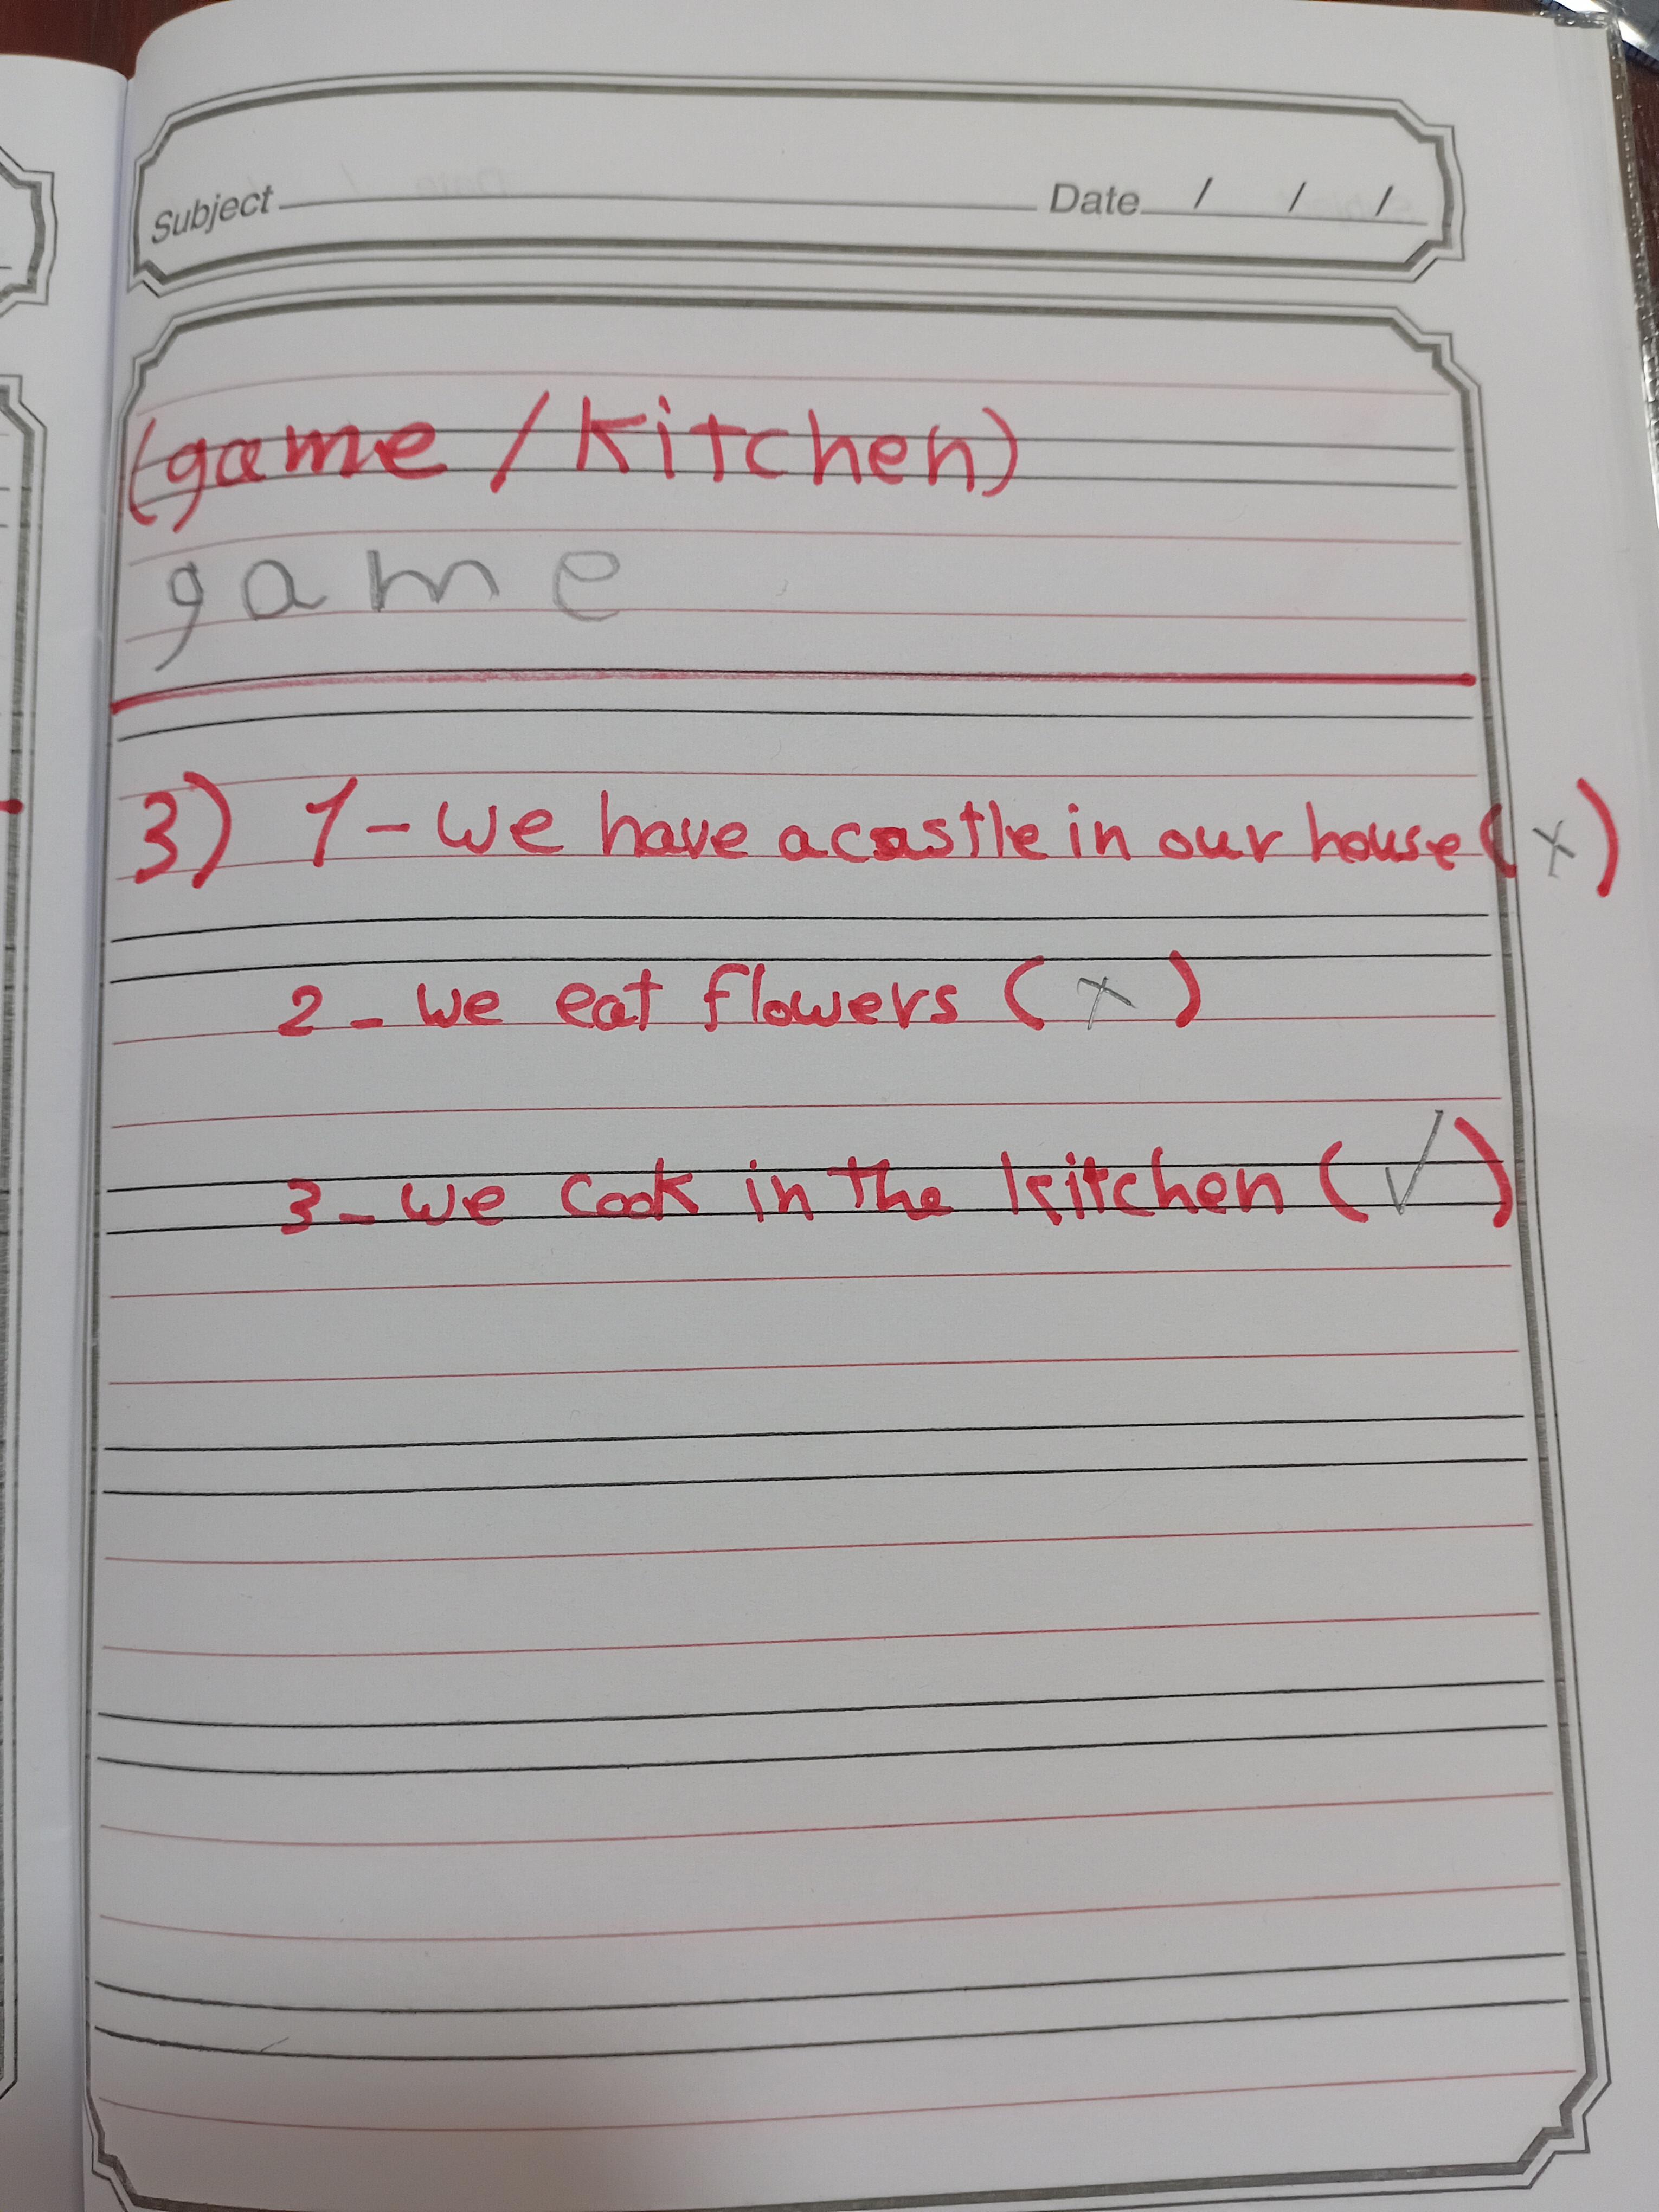 Subject Date / / /
(game / kitchen)
game
3) 1 - we have a castle in our house (x)
2 - we eat flowers (x)
3 - we cook in the kitchen (✓)